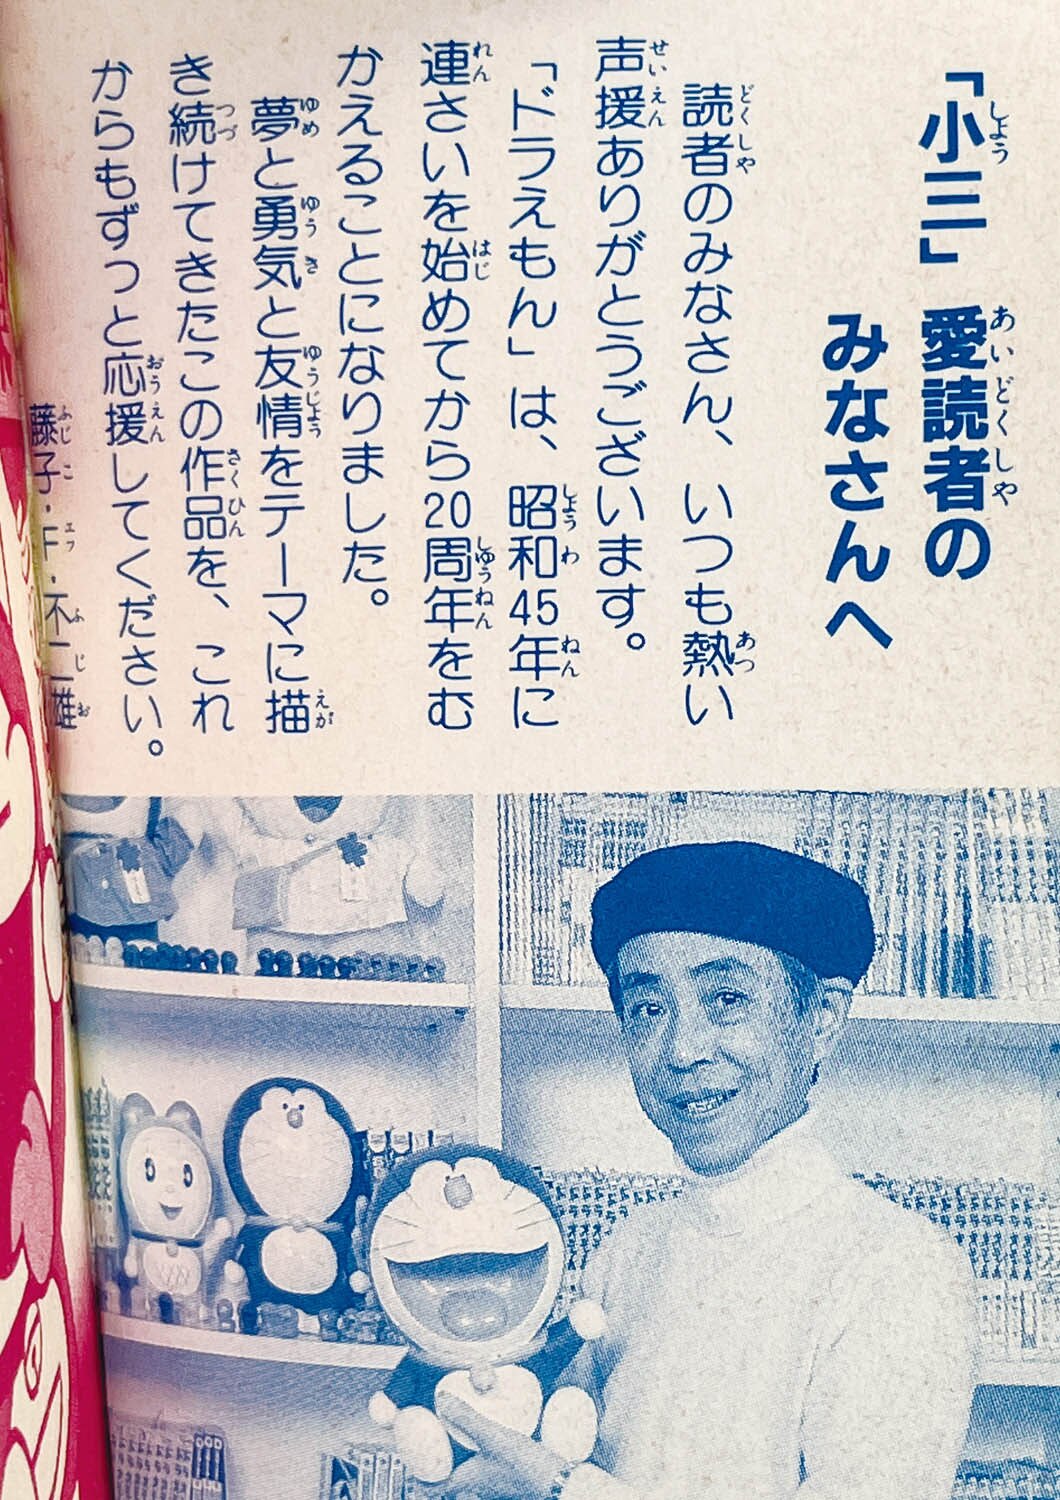 「小三」愛読者の
みなさんへ
読者のみなさん、いつも熱い
声援ありがとうございます。
「ドラえもん」は、昭和45年に
連さいを始めてから20周年をむ
かえることになりました。
夢と勇気と友情をテーマに描
き続けてきたこの作品を、これ
からもずっと応援してください。
藤子・F・不二雄